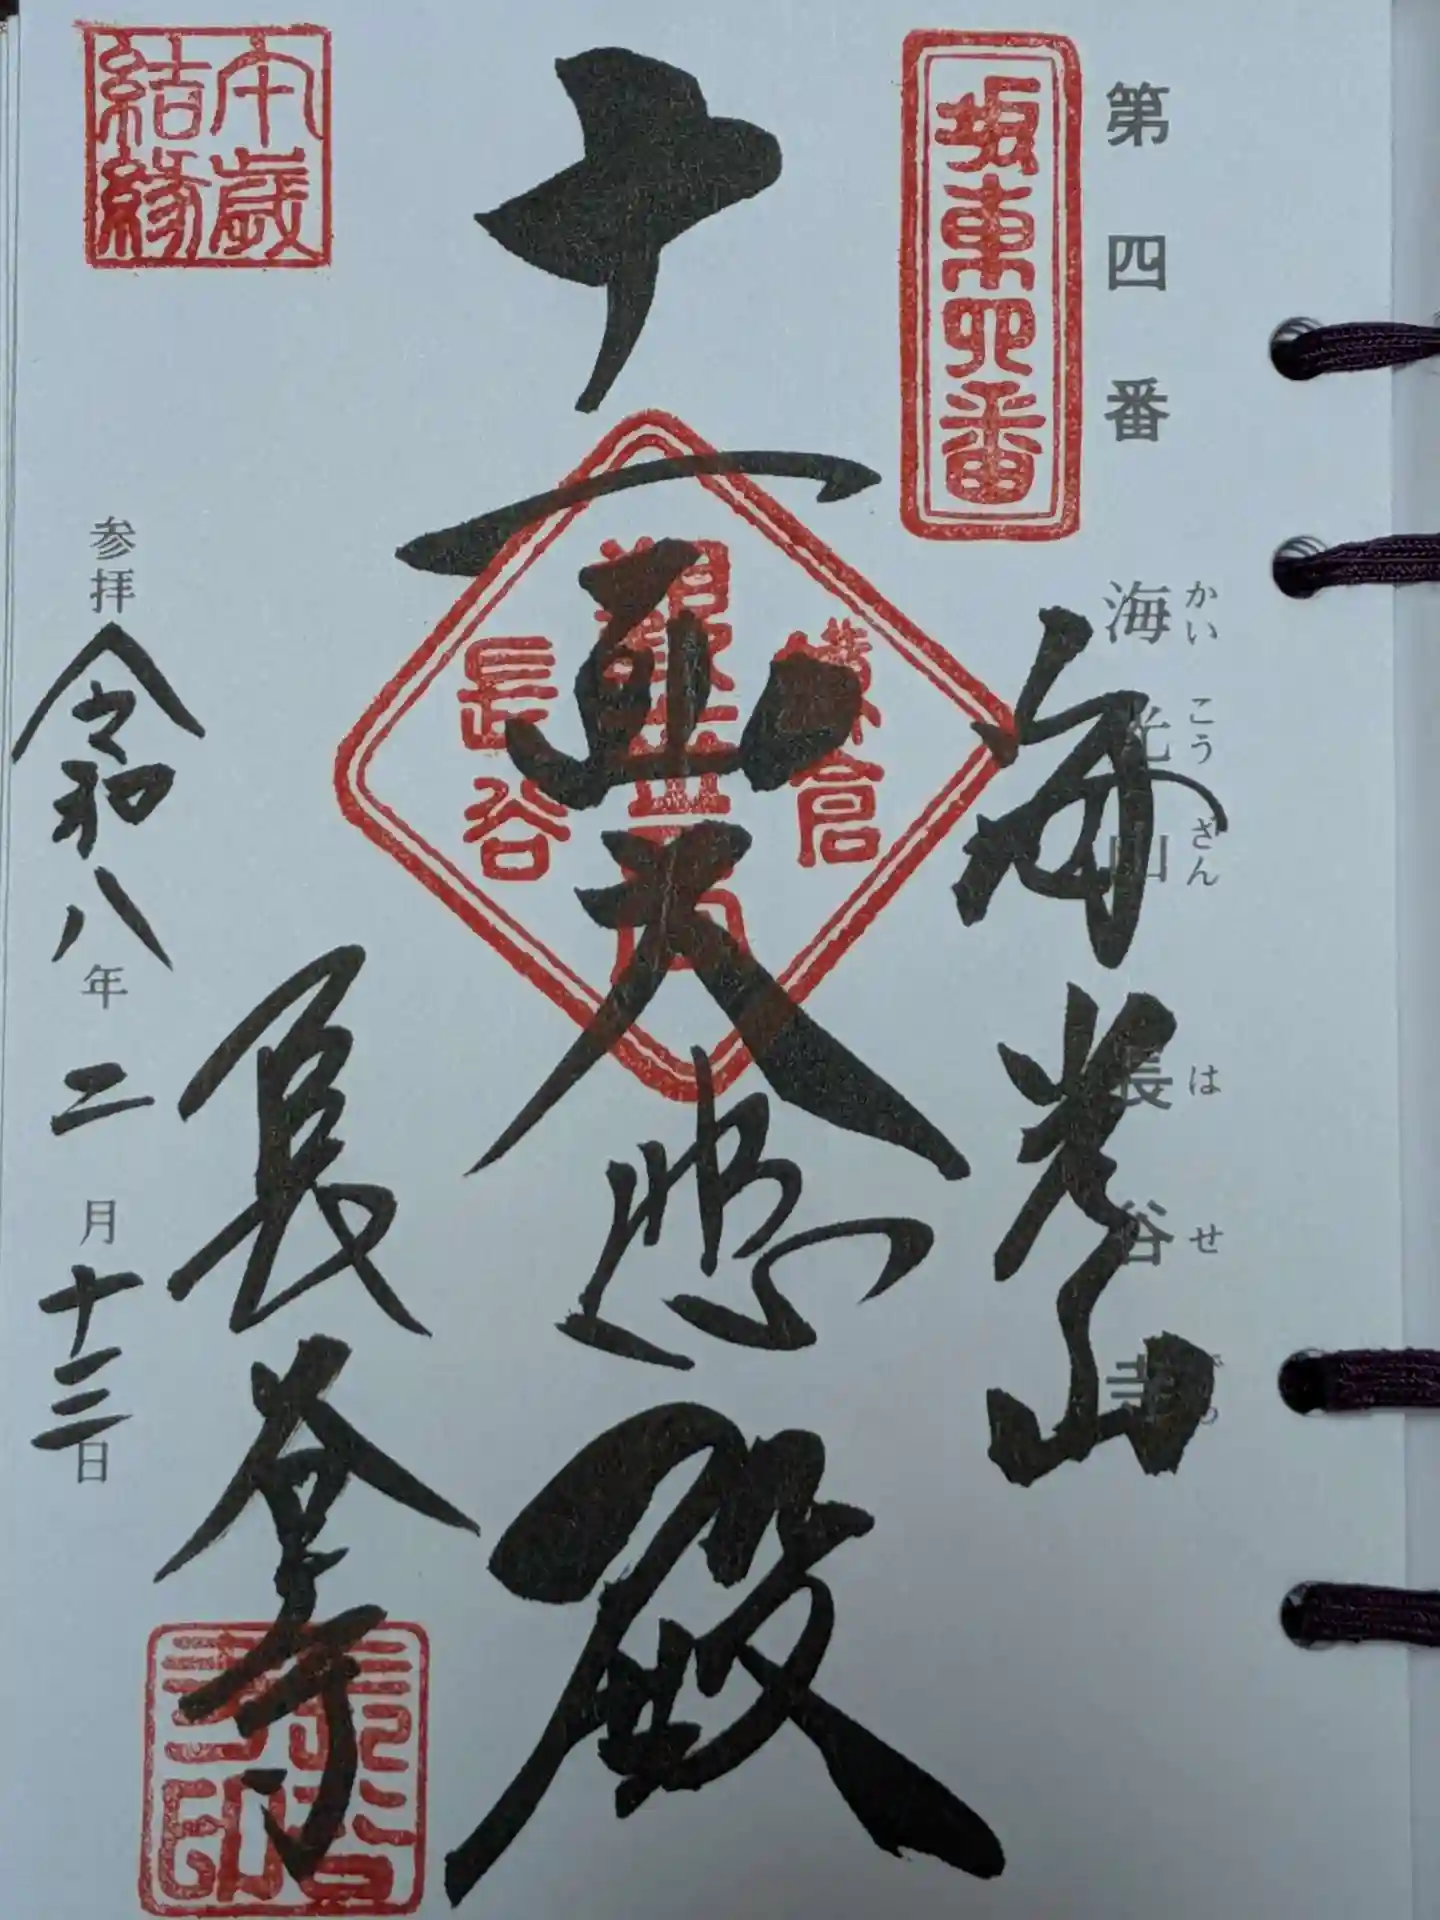 第四番
海光山 長谷寺
かいこうざん はせでら
坂東四番
海光山
十一面大悲殿
鎌倉
観世音
長谷
長谷寺
長谷寺印
午歳
結縁
参拝 令和八年二月十三日